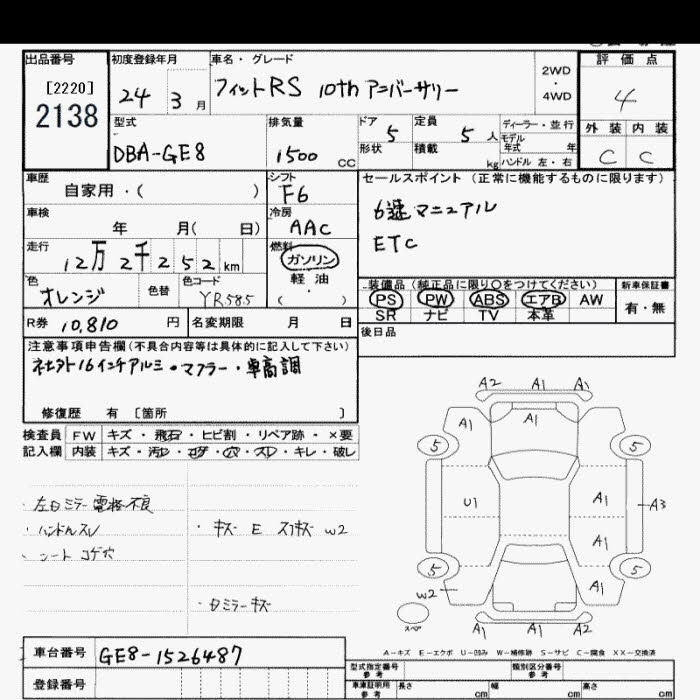 出品番号 初度登録年月 車名・グレード 評価点
[2220] 24 3月 フィットRS 10th アニバーサリー 2WD・4WD 4
2138
型式 排気量 ドア 5 定員 5人 ディーラー・並行 外装 内装
DBA-GE8 1500cc 形状 積載 kg モデル年式 年 C C
ハンドル 左・右
車歴 シフト セールスポイント (正常に機能するものに限ります)
自家用・( ) F6 6速マニュアル
車検 冷房 ETC
年 月( 日) AAC
走行 燃料
12万2千252km ガソリン
軽油
・
( )
色 色替 色コード 装備品 (純正品に限り○をつけてください) 新車保証書
オレンジ YR585 PS PW ABS エアB AW 有・無
SR ナビ TV 本革
R券 10,810 円 名変期限 月 日 後日品
注意事項申告欄(不具合内容等は具体的に記入して下さい)
社外16インチアルミ・マフラー・車高調
修復歴 有 [箇所 ]
検査員 FW キズ・飛石・ヒビ割・リペア跡・×要
記入欄 内装 キズ・汚レ・コゲ・穴・スレ・キレ・破レ
・左ドミラー電格不良
・ハンドルスレ
・シート コゲ穴
・キズ E スリキズ W2
・Dミラーキズ
A2 A1 A1
A1 A1
5 5
U1 A1 A3
A1
5 5
W2 A1
スペア A1 A1 A2
A－キズ E－エクボ U－凹み W－補修跡 S－サビ C－腐食 XX－交換済
車台番号 GE8-1526487
登録番号
型式指定番号 参考 類別区分番号 参考
車庫証明用 参考 長さ cm 幅 cm 高さ cm